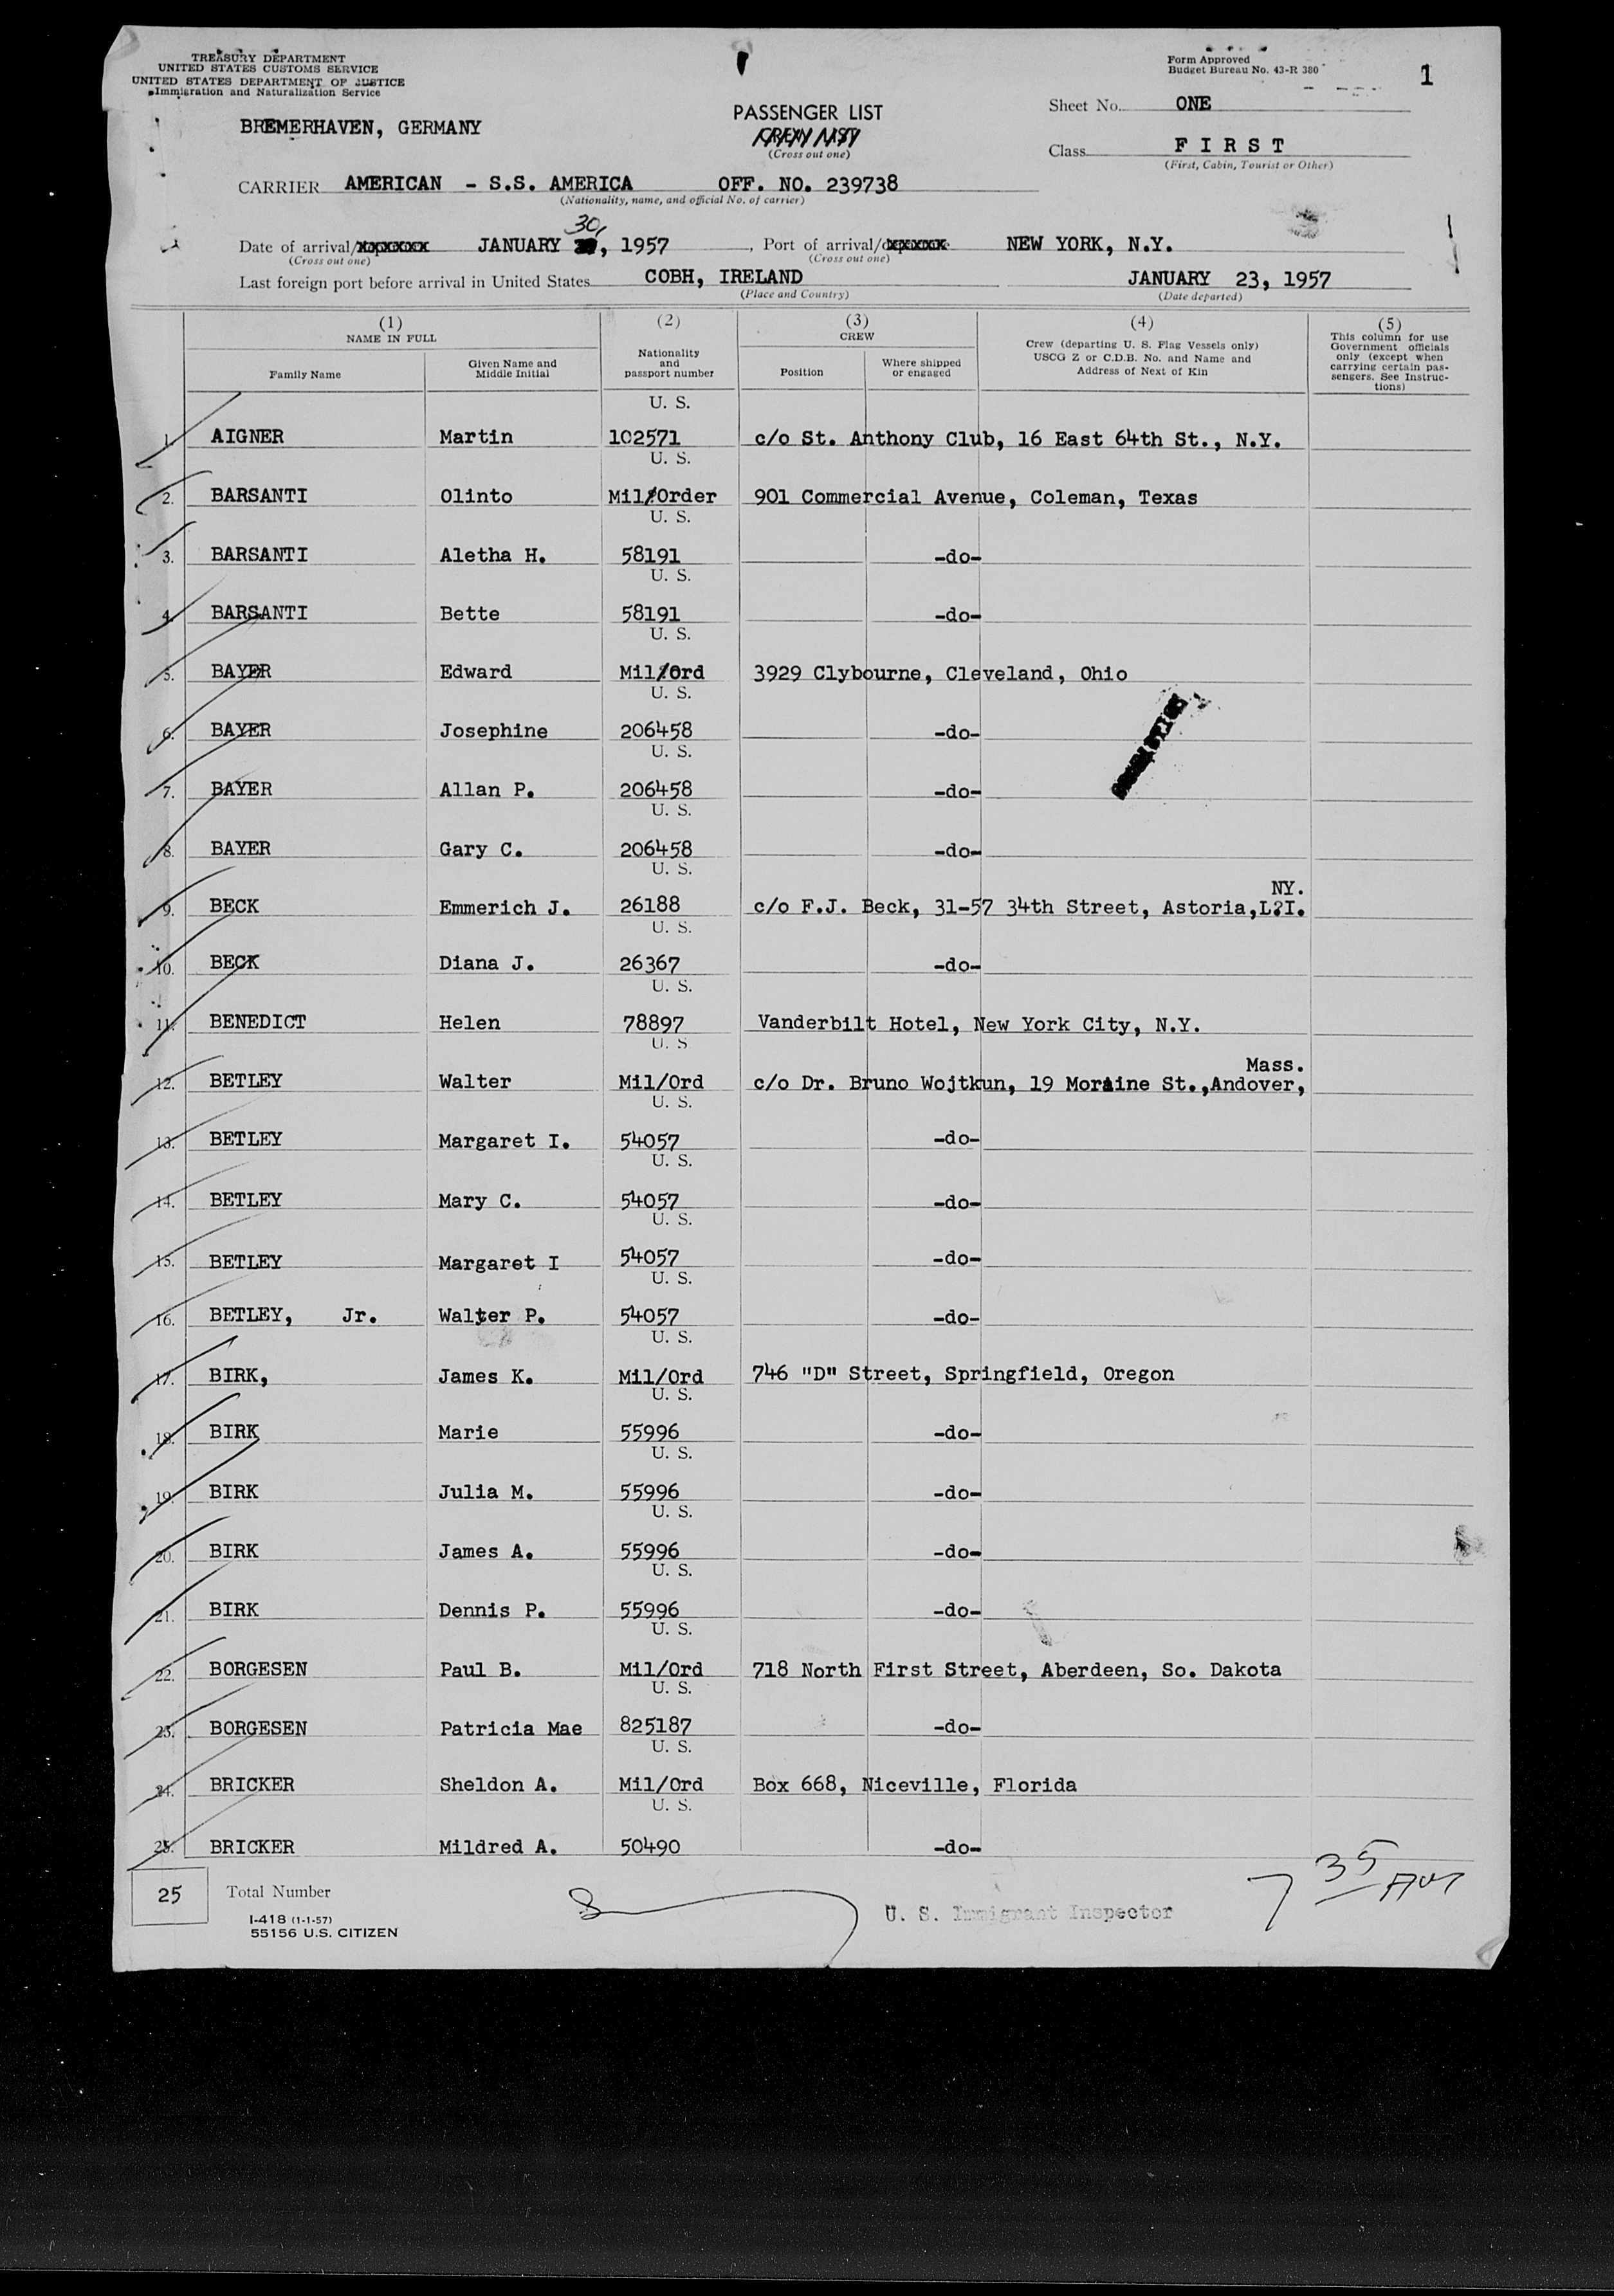 TREASURY DEPARTMENT
UNITED STATES CUSTOMS SERVICE
UNITED STATES DEPARTMENT OF JUSTICE
Immigration and Naturalization Service
Form Approved
Budget Bureau No. 43-R 380
1
BREMERHAVEN, GERMANY
PASSENGER LIST
CREW LIST
(Cross out one)
Sheet No. ONE
Class FIRST
(First, Cabin, Tourist or Other)
CARRIER AMERICAN - S.S. AMERICA OFF. NO. 239738
(Nationality, name, and official No. of carrier)
30,
Date of arrival/ JANUARY , 1957, Port of arrival/ NEW YORK, N.Y.
(Cross out one) (Cross out one)
Last foreign port before arrival in United States COBH, IRELAND JANUARY 23, 1957
(Place and Country) (Date departed)
(1) NAME IN FULL
Family Name
Given Name and Middle Initial
(2) Nationality and passport number
(3) CREW
Position
Where shipped or engaged
(4) Crew (departing U. S. Flag Vessels only) USCG Z or C.D.B. No. and Name and Address of Next of Kin
(5) This column for use Government officials only (except when carrying certain passengers. See Instructions)
U. S.
1. AIGNER Martin 102571 c/o St. Anthony Club, 16 East 64th St., N.Y.
U. S.
2. BARSANTI Olinto Mil/Order 901 Commercial Avenue, Coleman, Texas
U. S.
3. BARSANTI Aletha H. 58191 -do-
U. S.
4. BARSANTI Bette 58191 -do-
U. S.
5. BAYER Edward Mil/Ord 3929 Clybourne, Cleveland, Ohio
U. S.
6. BAYER Josephine 206458 -do-
U. S.
7. BAYER Allan P. 206458 -do-
U. S.
8. BAYER Gary C. 206458 -do-
U. S.
NY.
9. BECK Emmerich J. 26188 c/o F.J. Beck, 31-57 34th Street, Astoria,L?I.
U. S.
10. BECK Diana J. 26367 -do-
U. S.
11. BENEDICT Helen 78897 Vanderbilt Hotel, New York City, N.Y.
U. S
Mass.
12. BETLEY Walter Mil/Ord c/o Dr. Bruno Wojtkun, 19 Moraine St.,Andover,
U. S.
13. BETLEY Margaret I. 54057 -do-
U. S.
14. BETLEY Mary C. 54057 -do-
U. S.
15. BETLEY Margaret I 54057 -do-
U. S.
16. BETLEY, Jr. Walter P. 54057 -do-
U. S.
17. BIRK, James K. Mil/Ord 746 "D" Street, Springfield, Oregon
U. S.
18. BIRK Marie 55996 -do-
U. S.
19. BIRK Julia M. 55996 -do-
U. S.
20. BIRK James A. 55996 -do-
U. S.
21. BIRK Dennis P. 55996 -do-
U. S.
22. BORGESEN Paul B. Mil/Ord 718 North First Street, Aberdeen, So. Dakota
U. S.
23. BORGESEN Patricia Mae 825187 -do-
U. S.
24. BRICKER Sheldon A. Mil/Ord Box 668, Niceville, Florida
U. S.
25. BRICKER Mildred A. 50490 -do-
25 Total Number
I-418 (1-1-57)
55156 U.S. CITIZEN
U. S. Immigrant Inspector
7 35 AM